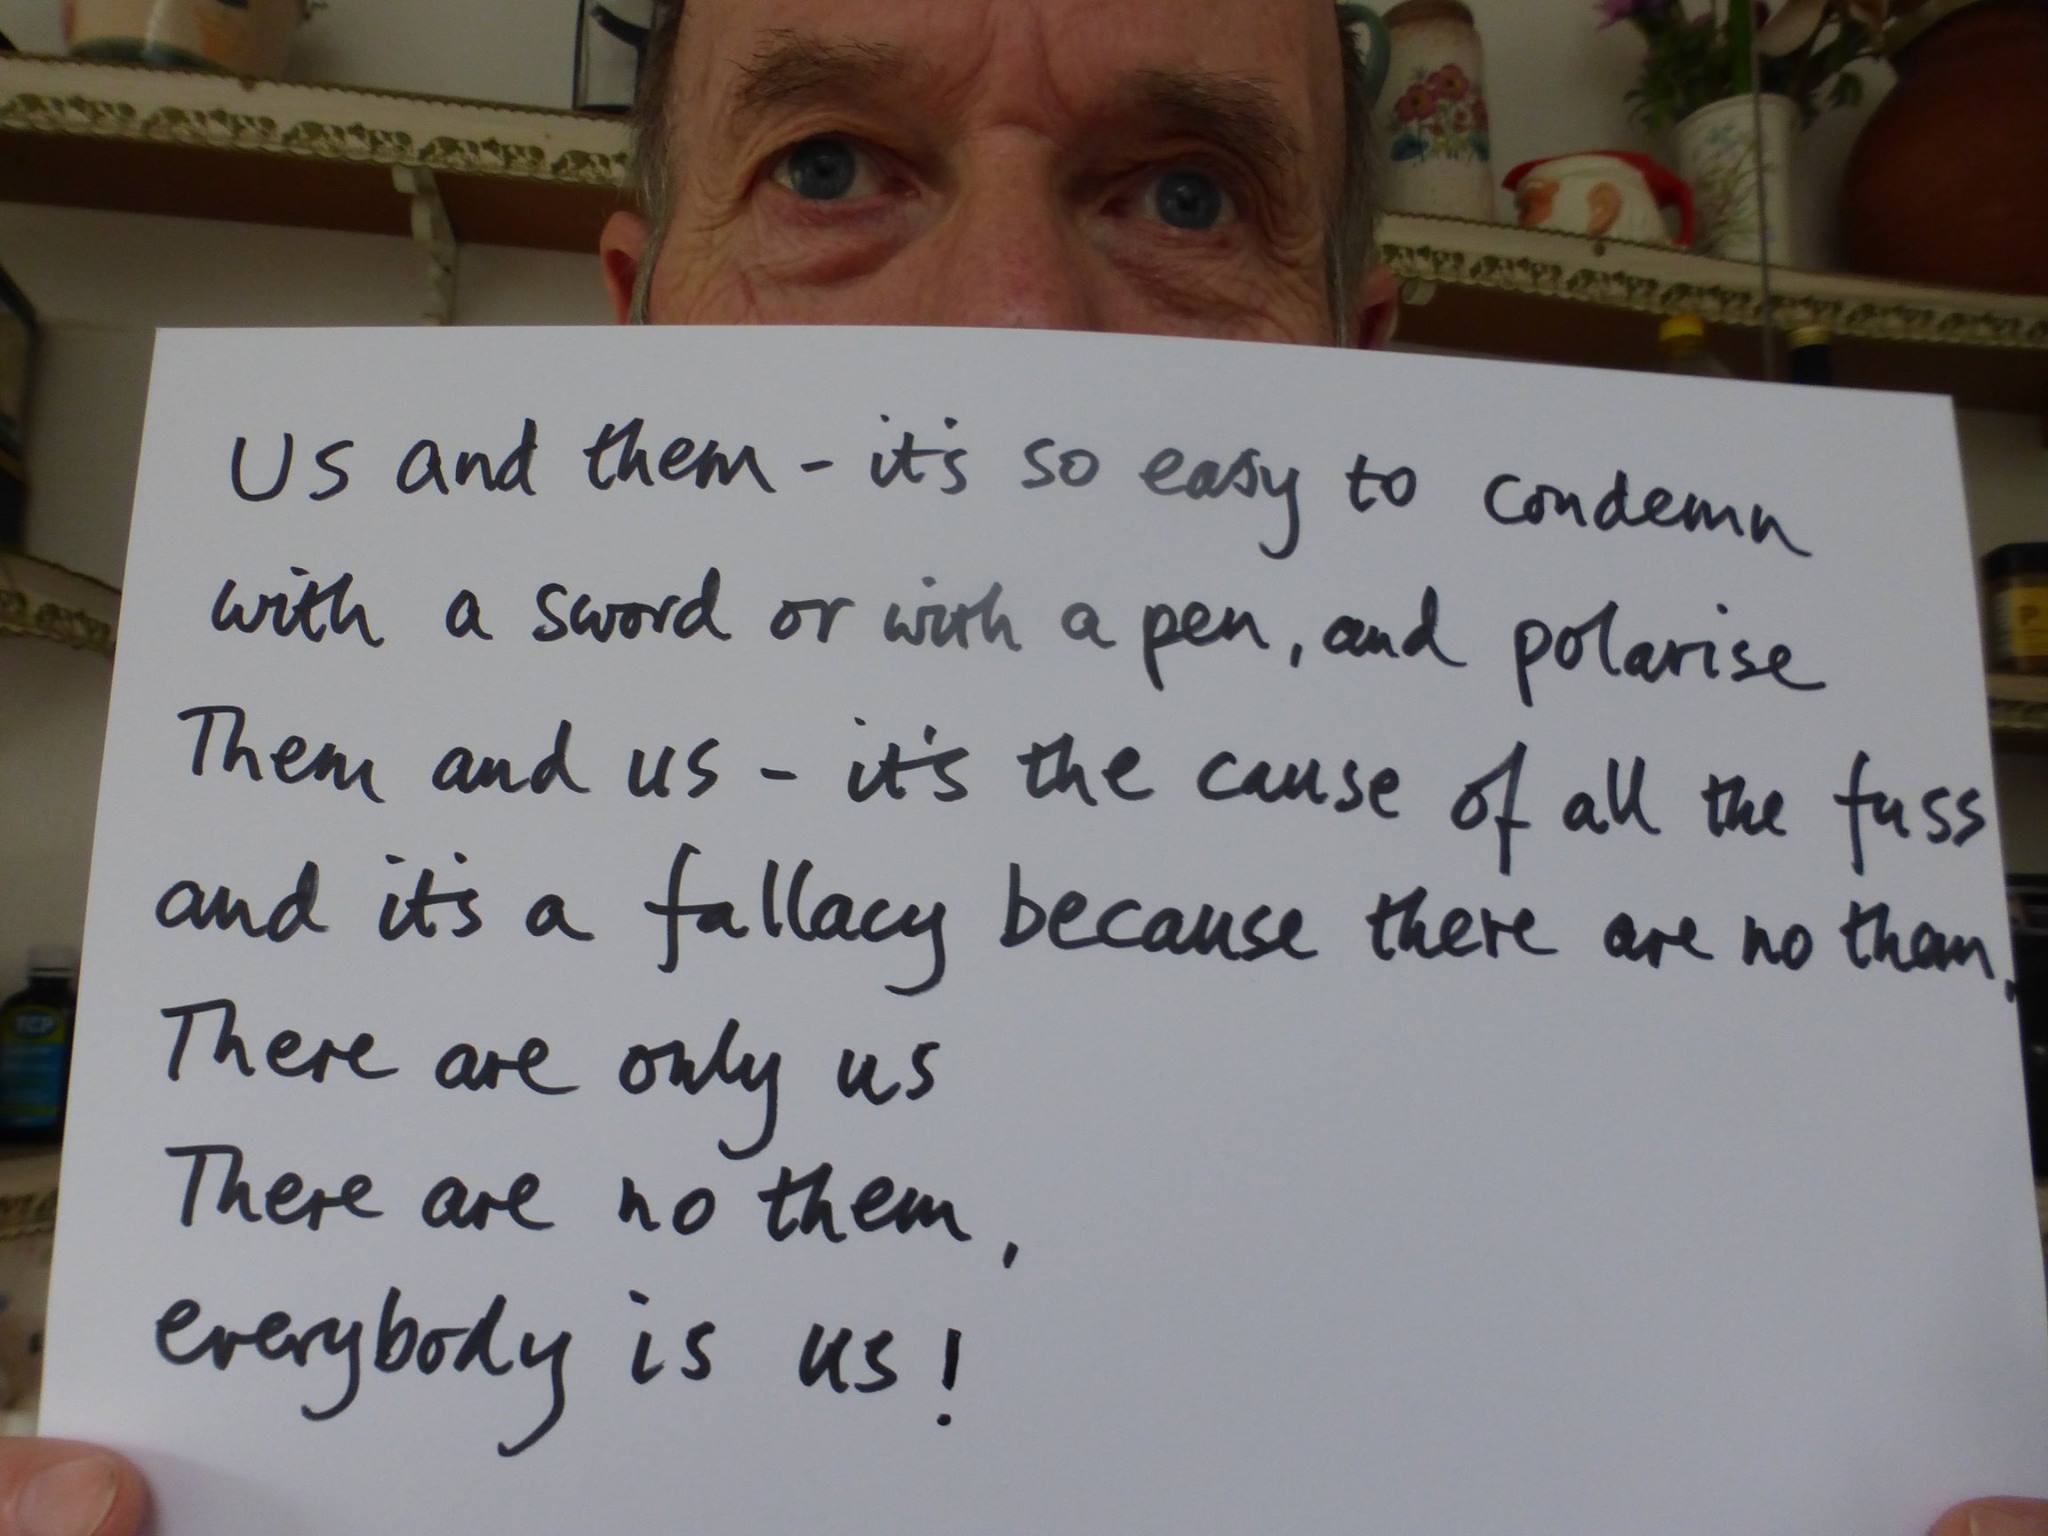 Us and them - it's so easy to condemn
with a sword or with a pen, and polarise
Them and us - it's the cause of all the fuss
and it's a fallacy because there are no them.
There are only us
There are no them,
everybody is us!
TCP